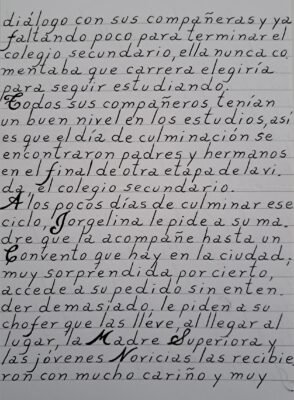 diálogo con sus compañeras y ya
faltando poco para terminar el
colegio secundario, ella nunca co
mentaba que carrera elegiría
para seguir estudiando.
Todos sus compañeros, tenían
un buen nivel en los estudios, así
es que el día de culminación se
encontraron padres y hermanos
en el final de otra etapa de la vi.
da, el colegio secundario.
A los pocos días de culminar ese
ciclo, Jorgelina le pide a su ma.
dre que la acompañe hasta un
Convento que hay en la ciudad;
muy sorprendida por cierto,
accede a su pedido sin enten.
der demasiado, le piden a su
chofer que las lléve, al llegar al
lugar, la Madre Superiora y
las jóvenes Novicias las recibie
ron con mucho cariño y muy